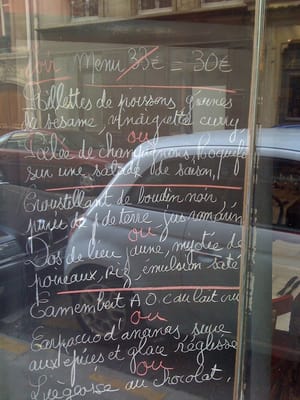 Soir Menu 33€ = 30€
Rillettes de poissons, graines
de sésame, vinaigrette curry,
ou
Poêlée de champignons, Roquette
sur une salade de saison,
Croustillant de boudin noir,
purée de p de terre, jus romarin
ou
Dos de lieu jaune, mijotée de
poireaux, riz, émulsion saté
Camembert A.O.C au lait cru
ou
Carpaccio d'ananas, sirop
aux épices et glace réglisse
ou
Liégeoise au chocolat,